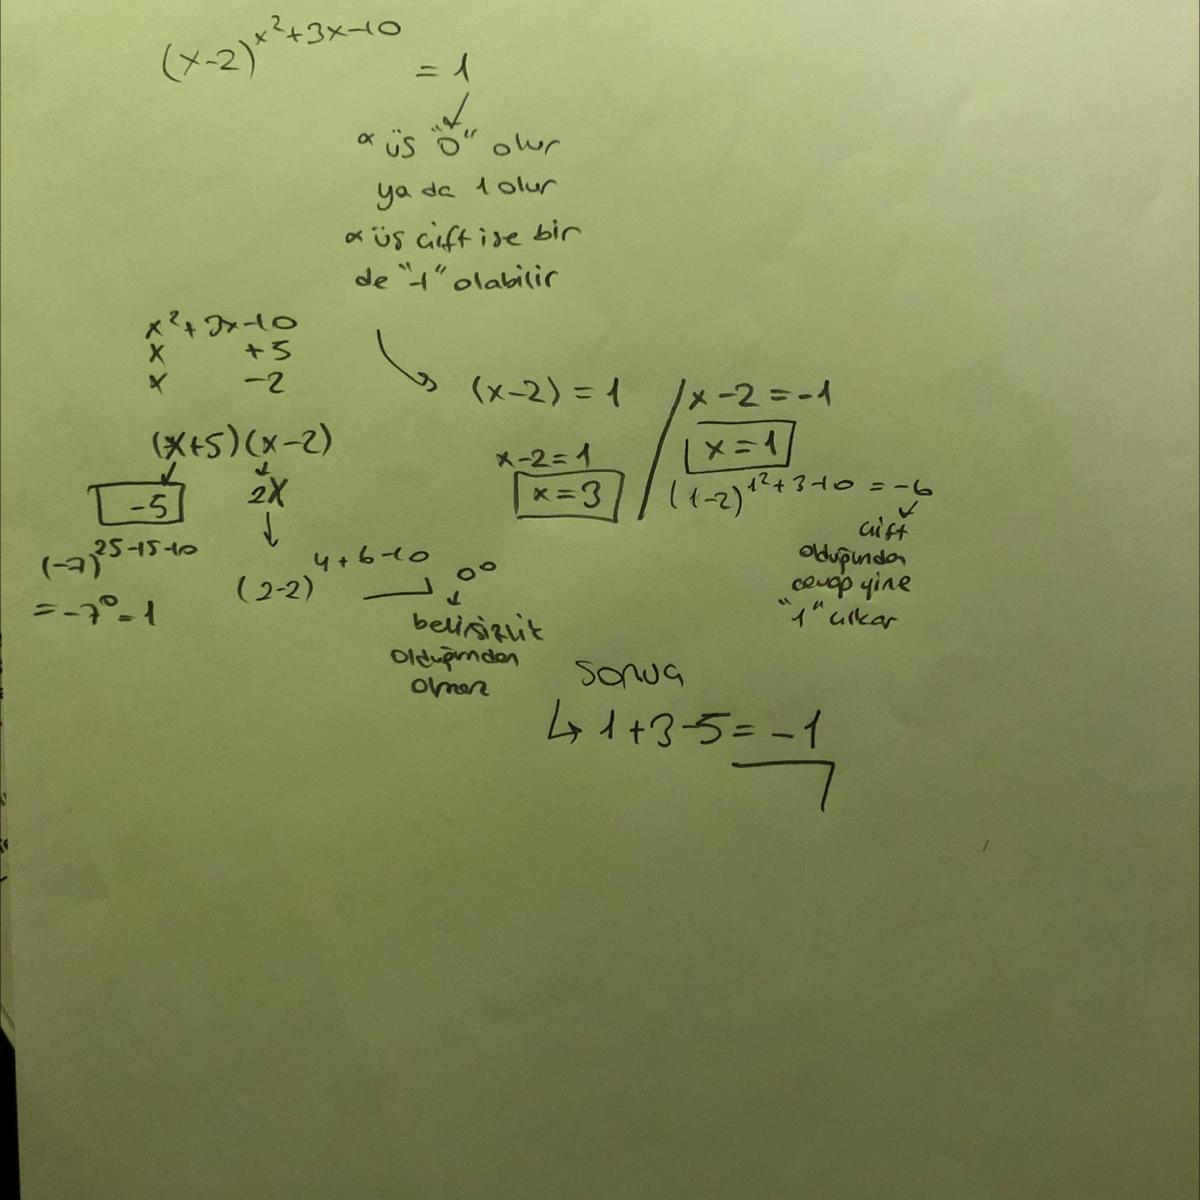 (x-2)^x²+3x-10 = 1
∝ üs "0" olur
ya da 1 olur
∝ üs çift ise bir
de "-1" olabilir
x²+3x-10
x +5
x -2
(x+5)(x-2)
-5 2X
(-7)^25-15-10
= -7⁰ = 1
(2-2)^4+6-10 0⁰
belirsizlik
olduğundan
olmaz
(x-2) = 1
x-2=1
x=3
x-2=-1
x=1
(1-2)^1²+3-10 = -6
çift
olduğundan
cevap yine
"1" çıkar
Sonuç
↳ 1+3-5 = -1